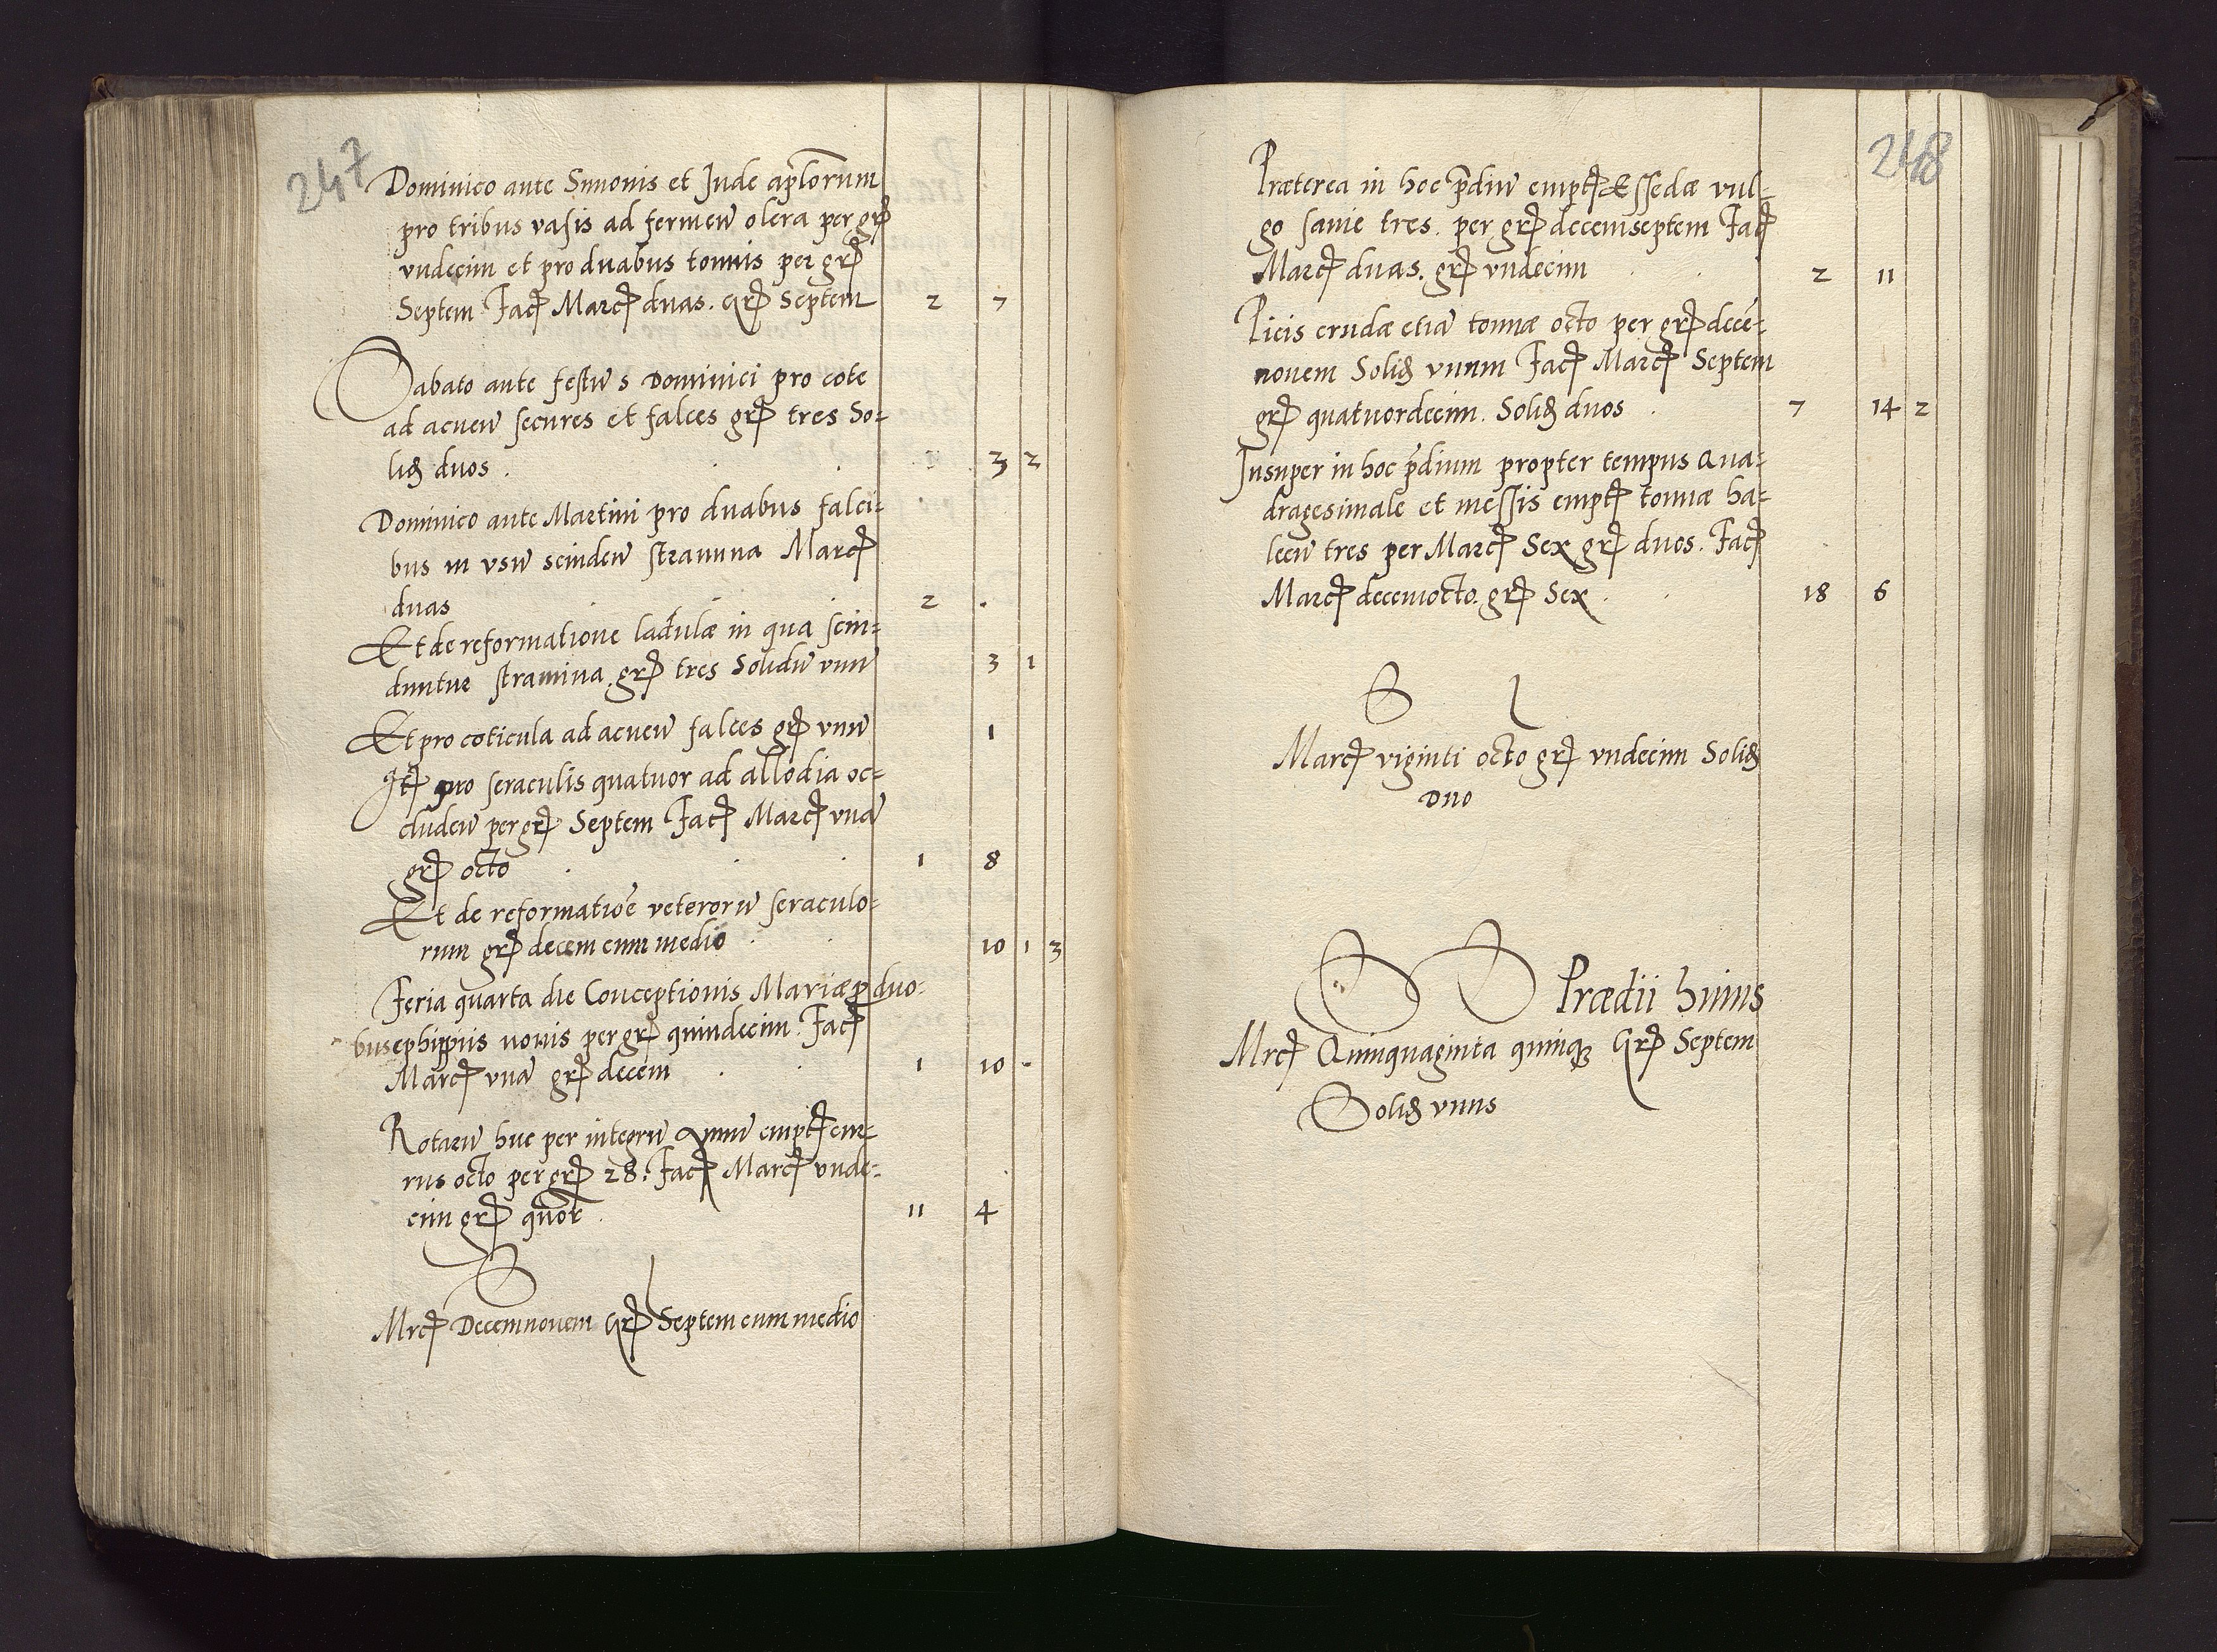 247
Dominico ante Simonis et Jude ap̄lorum
pro tribus vasis ad fermen̄ olera per gr̃
vndecim et pro duabus tonnis per gr̃
Septem Fac̃ Marc̃ duas. Gr̃ Septem 2 7
Sabato ante festū s Dominici pro cote
ad acuen̄ secures et falces gr̃ tres So=
lid̃ duos . 3 2
Dominico ante Martini pro duabus falci=
bus in vsū scinden̄ stramina Marc̃
duas 2 .
Et de reformatione ladulæ in qua scin=
duntur stramina gr̃ tres Solidū vnū 3 1
Et pro coticula ad acuen̄ falces gr̃ vnū 1
Itẽ pro seraculis quatuor ad allodia oc=
cluden̄ per gr̃ Septem Fac̃ Marc̃ vnā
gr̃ octo 1 8
Et de reformatiōe veterorū seraculo=
rum gr̃ decem cum medio 10 1 3
Feria quarta die Conceptionis Mariæ p duo=
bus ephippiis nouis per gr̃ quindecim. Fac̃
Marc̃ vnā gr̃ decem 1 10 -
Rotarū huc per integrū Annū empt̃ cur=
rus octo per gr̃ 28. Fac̃ Marc̃ vnde=
cim gr̃ quōr . 11 4
S l
Mrc̃ Decemnouem Gr̃ Septem cum medio
248
Præterea in hoc p̄diū empt̃ Essedæ vul=
go sanie tres. per gr̃ decemseptem Fac̃
Marc̃ duas. gr̃ vndecim 2 11
Picis crudæ etiā tonnæ octo per gr̃ decē=
nouem Solid̃ vnum Fac̃ Marc̃ Septem
gr̃ quatuordecim. Solid̃ duos . 7 14 2
Insuper in hoc p̄dium propter tempus Qua=
dragesimale et messis empt̃ tonnæ ha=
lecū tres per Marc̃ Sex gr̃ duos. Fac̃
Marc̃ decemocto. gr̃ Sex . 18 6
S l
Marc̃ viginti octo gr̃ vndecim Solid̃
Duo
S S Prædii huius
Mrc̃ Quinquaginta quinq3 Gr̃ Septem
Solid̃ vnus